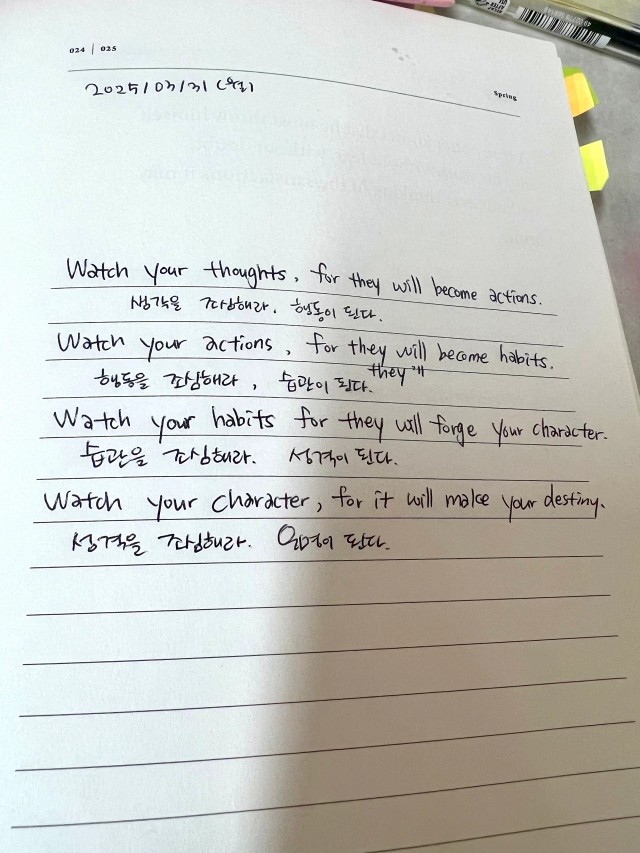 024 | 025
2025/03/31 (월)
Spring
Watch your thoughts, for they will become actions.
생각을 조심해라. 행동이 된다.
Watch your actions, for they will become habits.
행동을 조심해라, 습관이 된다.
they'll
Watch your habits for they will forge your character.
습관을 조심해라. 성격이 된다.
Watch your character, for it will make your destiny.
성격을 조심해라. 운명이 된다.